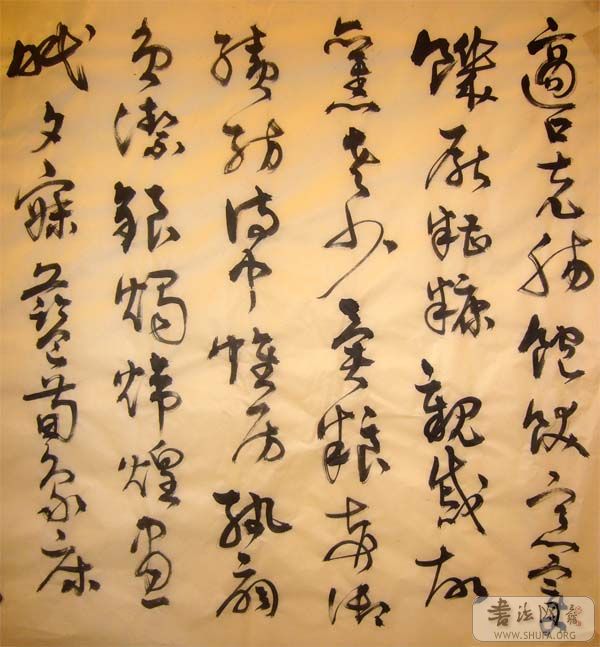 適口充腸飽飫烹宰
饑厭糟糠親戚故
舊老少異糧妾御
績紡侍巾帷房紈扇
員潔銀燭煒煌晝
眠夕寐藍筍象床
書法网
WWW.SHUFA.ORG